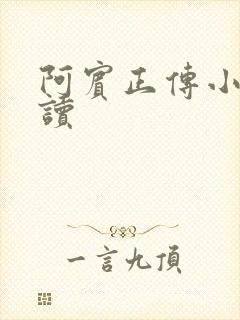 阿賓正傳小
讀
一言九頂